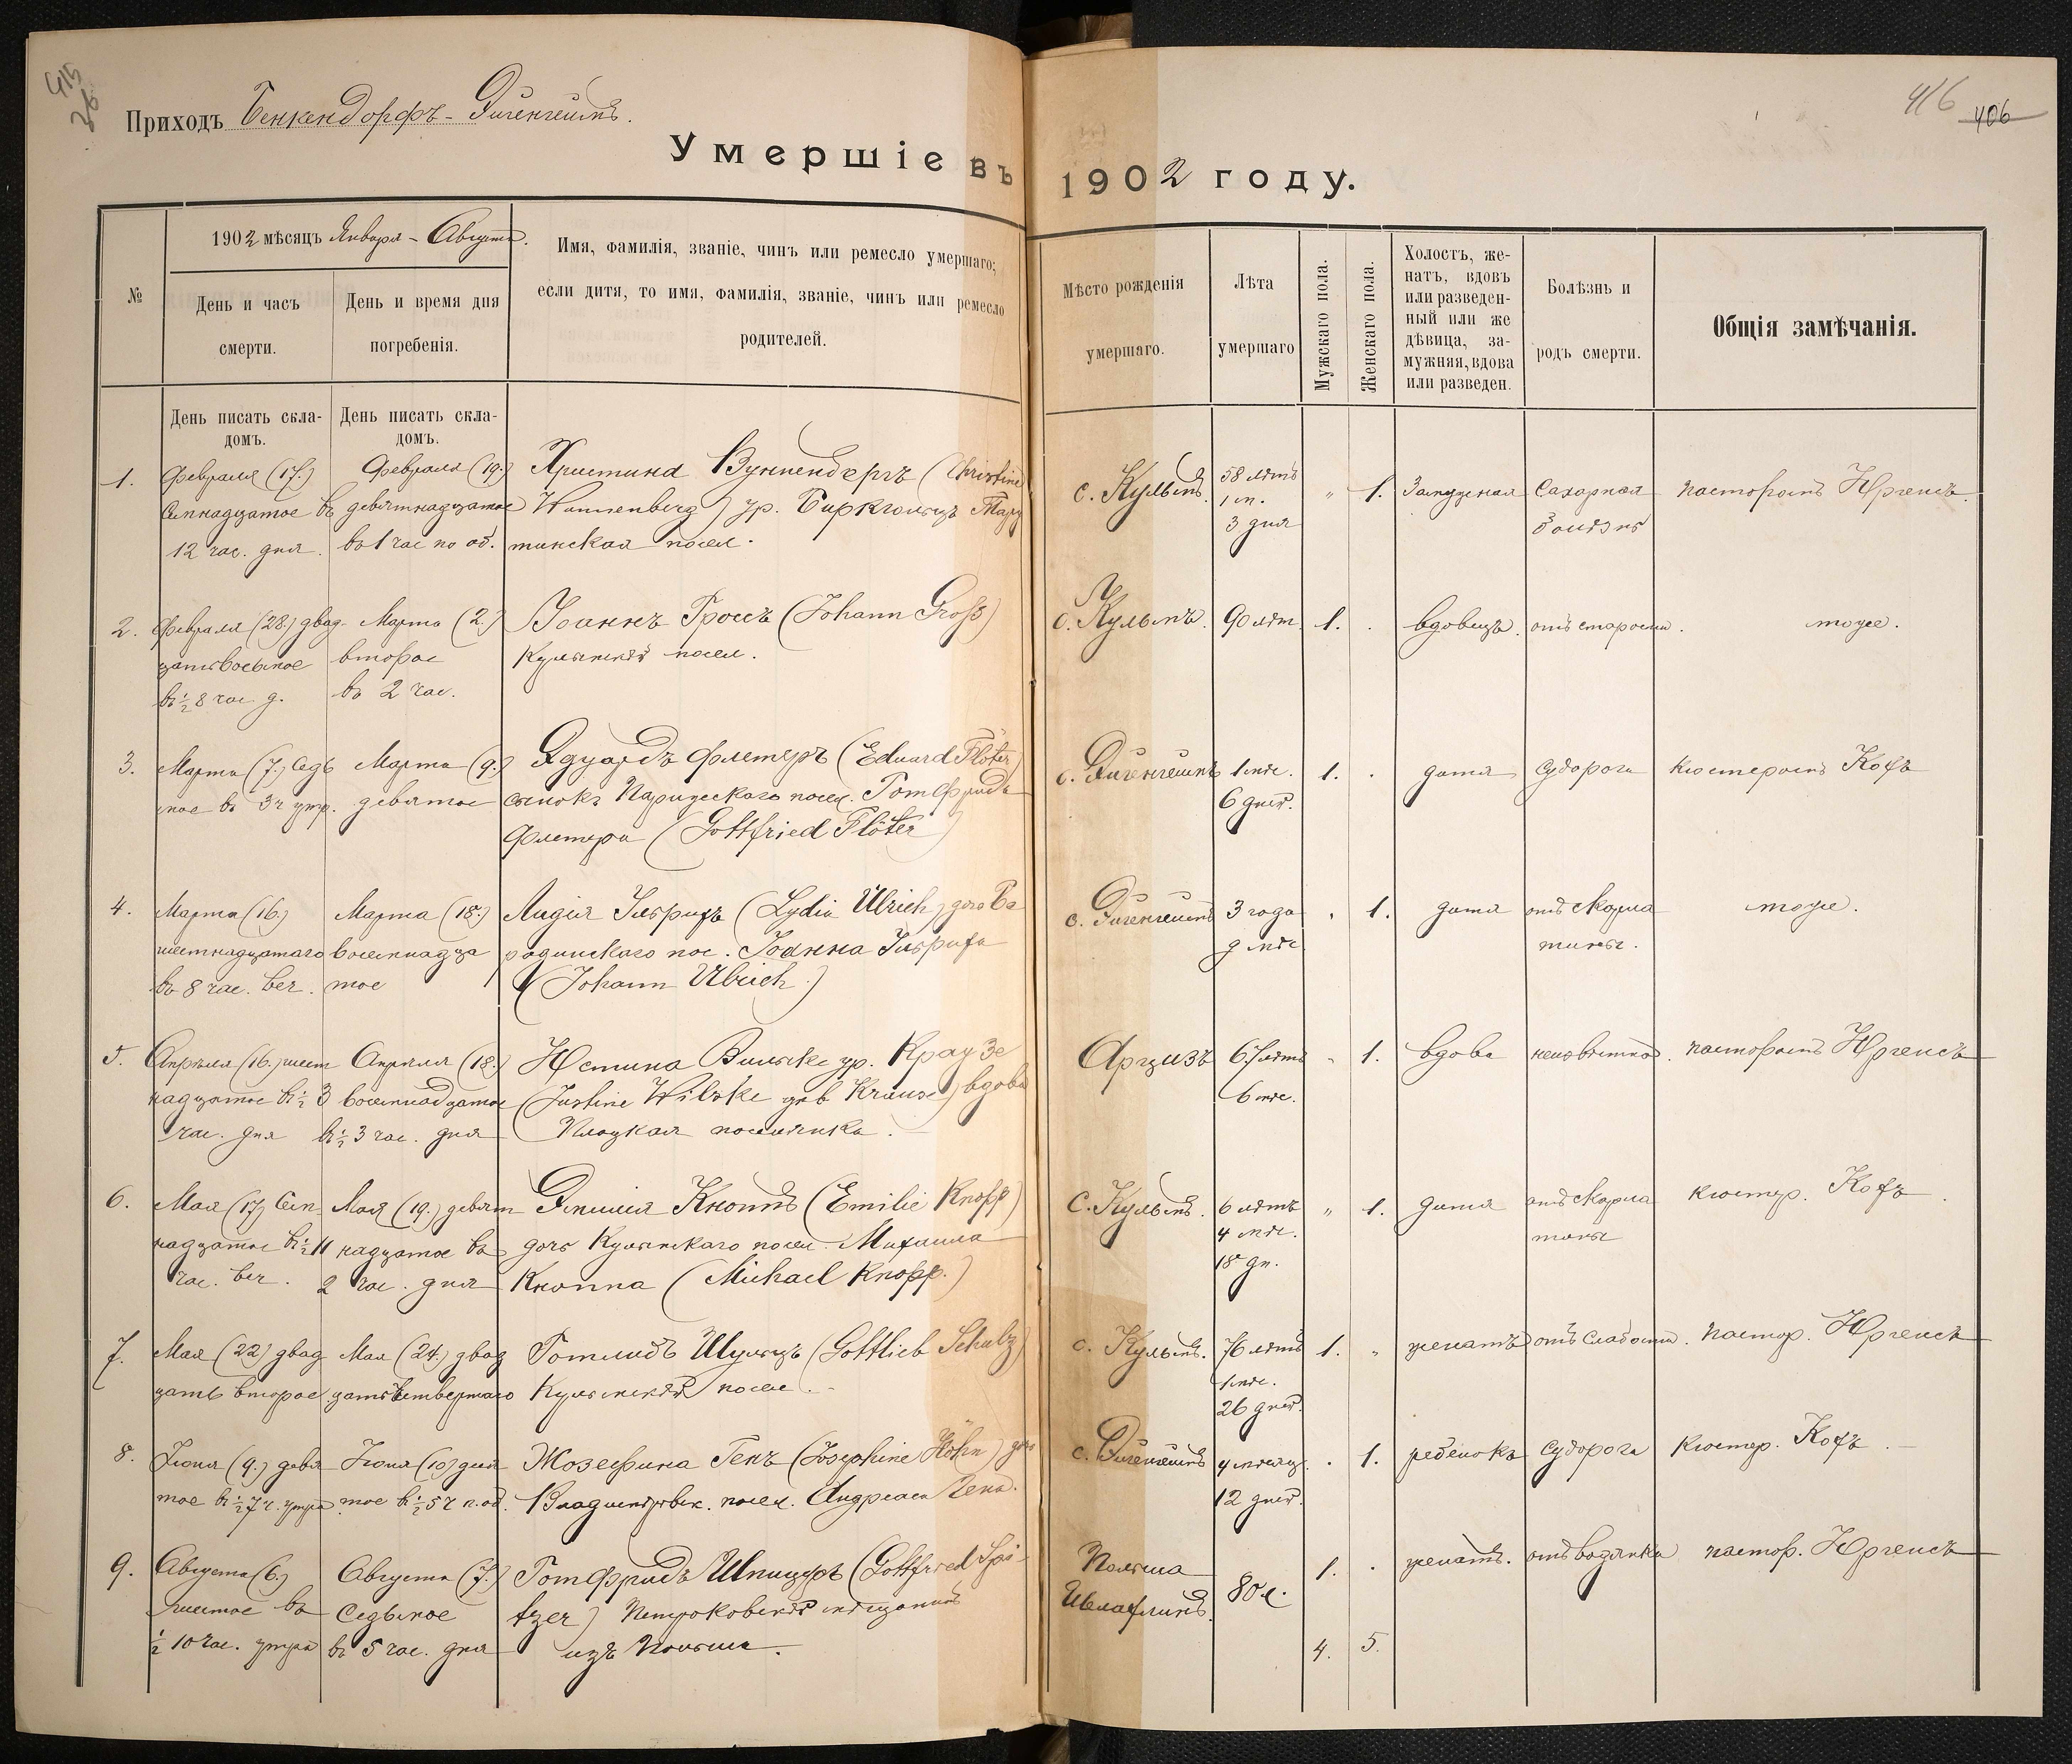 415
26
416
406
Приходъ Бенкендорфъ-Эигенгеимъ.
Умершіе въ 1902 году.
№
1902 мѣсяцъ Января - Августа.
День и часъ смерти.
День и время дня погребенія.
Имя, фамилія, званіе, чинъ или ремесло умершаго;
если дитя, то имя, фамилія, званіе, чинъ или ремесло
родителей.
Мѣсто рожденія
умершаго.
Лѣта
умершаго
Мужскаго пола.
Женскаго пола.
Холостъ, же-
натъ, вдовъ
или разведен-
ный или же
дѣвица, за-
мужняя, вдова
или разведен.
Болѣзнь и
родъ смерти.
Общія замѣчанія.
День писать скла-
домъ.
День писать скла-
домъ.
1. Февраля (17.) Февраля (19.) Христина (Christine с. Кульмъ. 58 лѣтъ " 1. Замужная Сахарная пасторомъ Юргенсъ.
Семнадцатое въ девятнадцатое Wunnenberg) ур. Биркгольцъ 1 м.
12 час. дня. въ 1 час по об. тинская посел. 3 дня
2. Февраля (28.) двад- Марта (2.) Іоаннъ Гросъ (Johann Groß) с. Кульмъ. 90 лѣт. 1. . вдовецъ. отъ старости. тоже.
цатьвосьмое второе Кульмскій посел.
въ ½ 8 час. д. въ 2 час.
3. Марта (7.) седь Марта (9.) Эдуардъ Флетеръ (Eduard Flöter) с. Эигенгеимъ 1 мѣс. 1. . дитя судорога кюстеромъ Кохъ
мое въ 3 ч утр. девятое сынокъ Парижскаго посел. Готфрида 6 дней.
Флетера (Gottfried Flöter)
4. Марта (16.) Марта (18.) Лидія Ульрихъ (Lydia Ulrich) дочь Бо с. Эигенгеимъ 3 года . 1. дитя отъ скарла тоже.
шестнадцатаго восемнадца родинскаго пос. Іоанна Ульриха 9 мѣс. тины.
въ 8 час. веч. тое (Johann Ulrich.)
5. Апрѣля (16.) шест Апрѣля (18.) Юстина Вильске ур. Краузе Арцизъ 67 лѣтъ " 1. вдова неизвѣстно. пасторомъ Юргенсъ
надцатое въ ½ 3 восемнадцатое (Justine Wilske geb Krause) вдова 6 мѣс.
час. дня въ ½ 3 час. дня Плоцкая поселянка.
6. Мая (17) Сем Мая (19.) девят Эмилія Кнопъ (Emilie Knopp) С. Кульмъ. 6 лѣтъ " 1. дитя отъ скарла кюстер. Кохъ.
надцатое въ ½ 11 надцатое въ дочь Кульмскаго посел. Михаила 4 мѣс. тины
час. веч. 2 час. дня Кноппа (Michael Knopp.) 18 дн.
7. Мая (22) двад Мая (24.) двад Готлибъ Шульцъ (Gottlieb Schulz) с. Кульмъ. 76 лѣтъ 1. " женатъ отъ слабости. пастор. Юргенсъ
цать второе цатьчетвертаго Кульмскій посел. 1 мѣс.
26 дней.
8. Іюня (9.) девя Іюня (10) деся Жозефина Генъ (Josephine Höhn) дочь с. Эигенгеимъ 4 мѣсяц. . 1. ребенокъ судорога кюстер. Кохъ.
тое въ ½ 7 ч. утра тое въ ½ 5 ч п. об. посел. Андреаса Гена. 12 дней.
9. Августа (6.) Августа (7.) Готфридъ Шпицеръ (Gottfried Spi- Польша 80 л. 1. . женатъ. отъ водянки пастор. Юргенсъ
шестое въ Седьмое tzer) Петроковскій мѣщанинъ
½ 10 час. утра въ 5 час. дня изъ Польши.
4. 5.